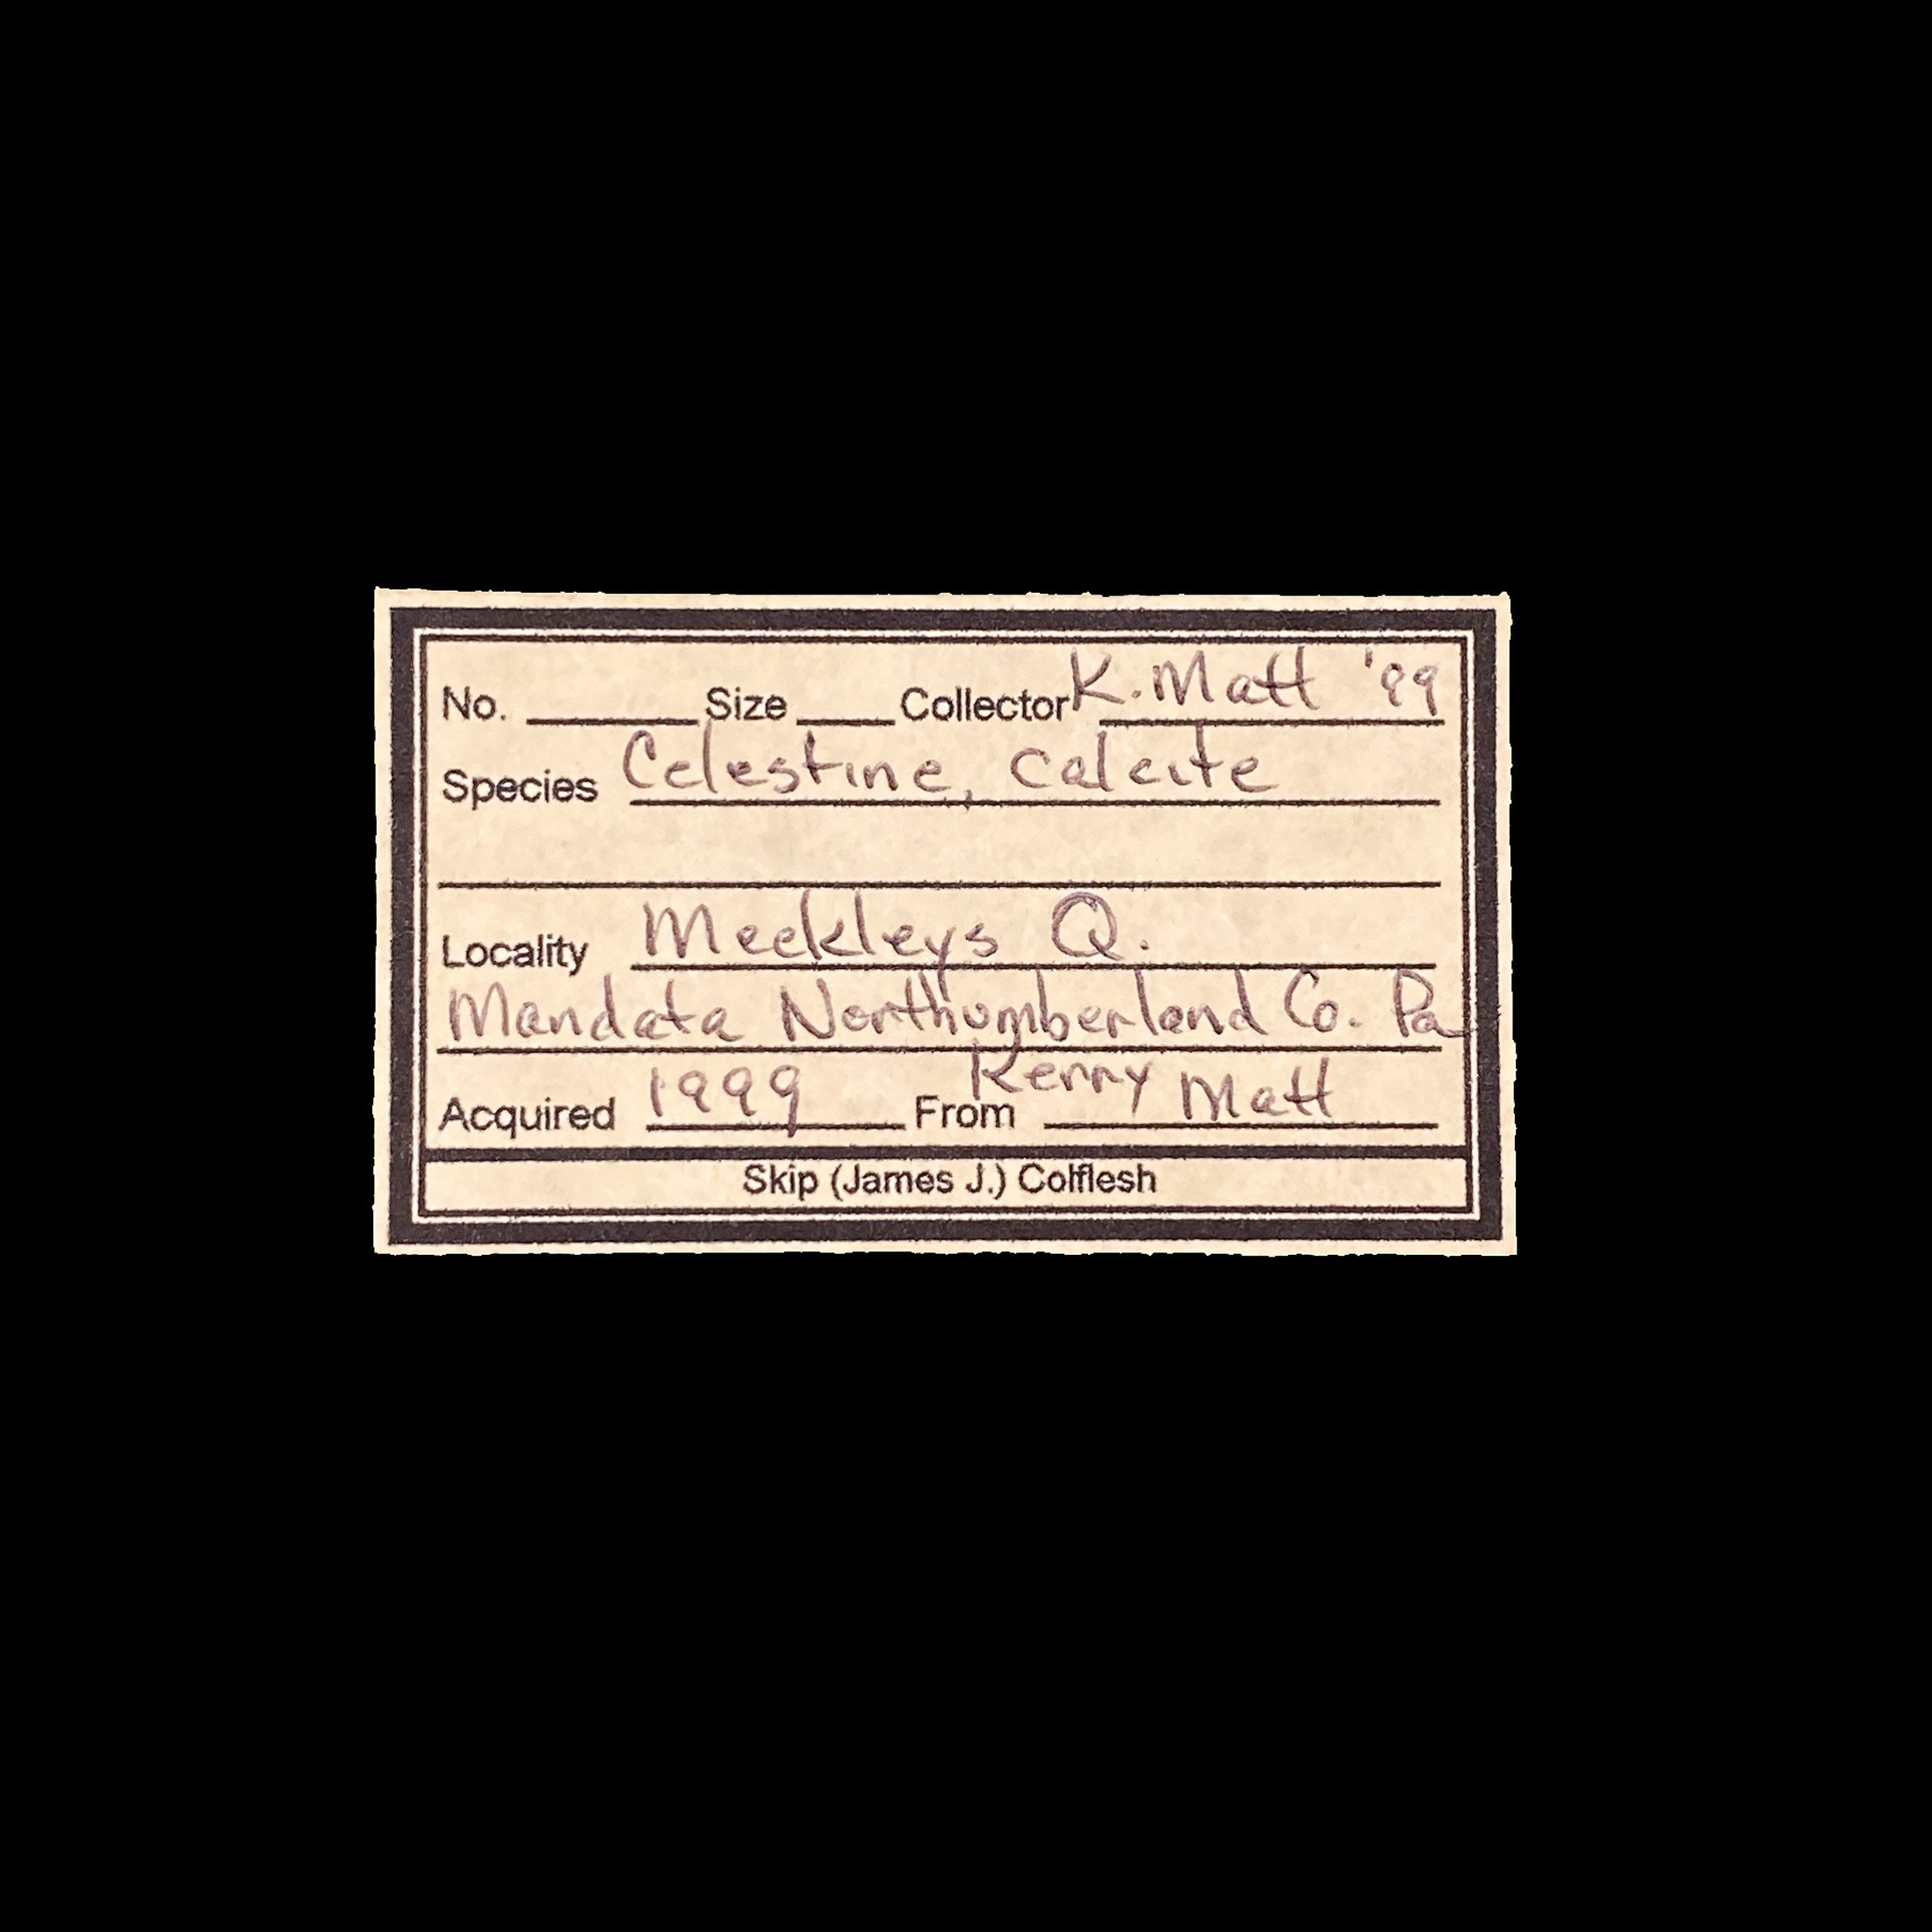 No. Size Collector K. Matt '99
Species Celestine, Calcite
Locality Meckleys Q.
Mandata Northumberland Co. Pa
Acquired 1999 From Kerry Matt
Skip (James J.) Colflesh